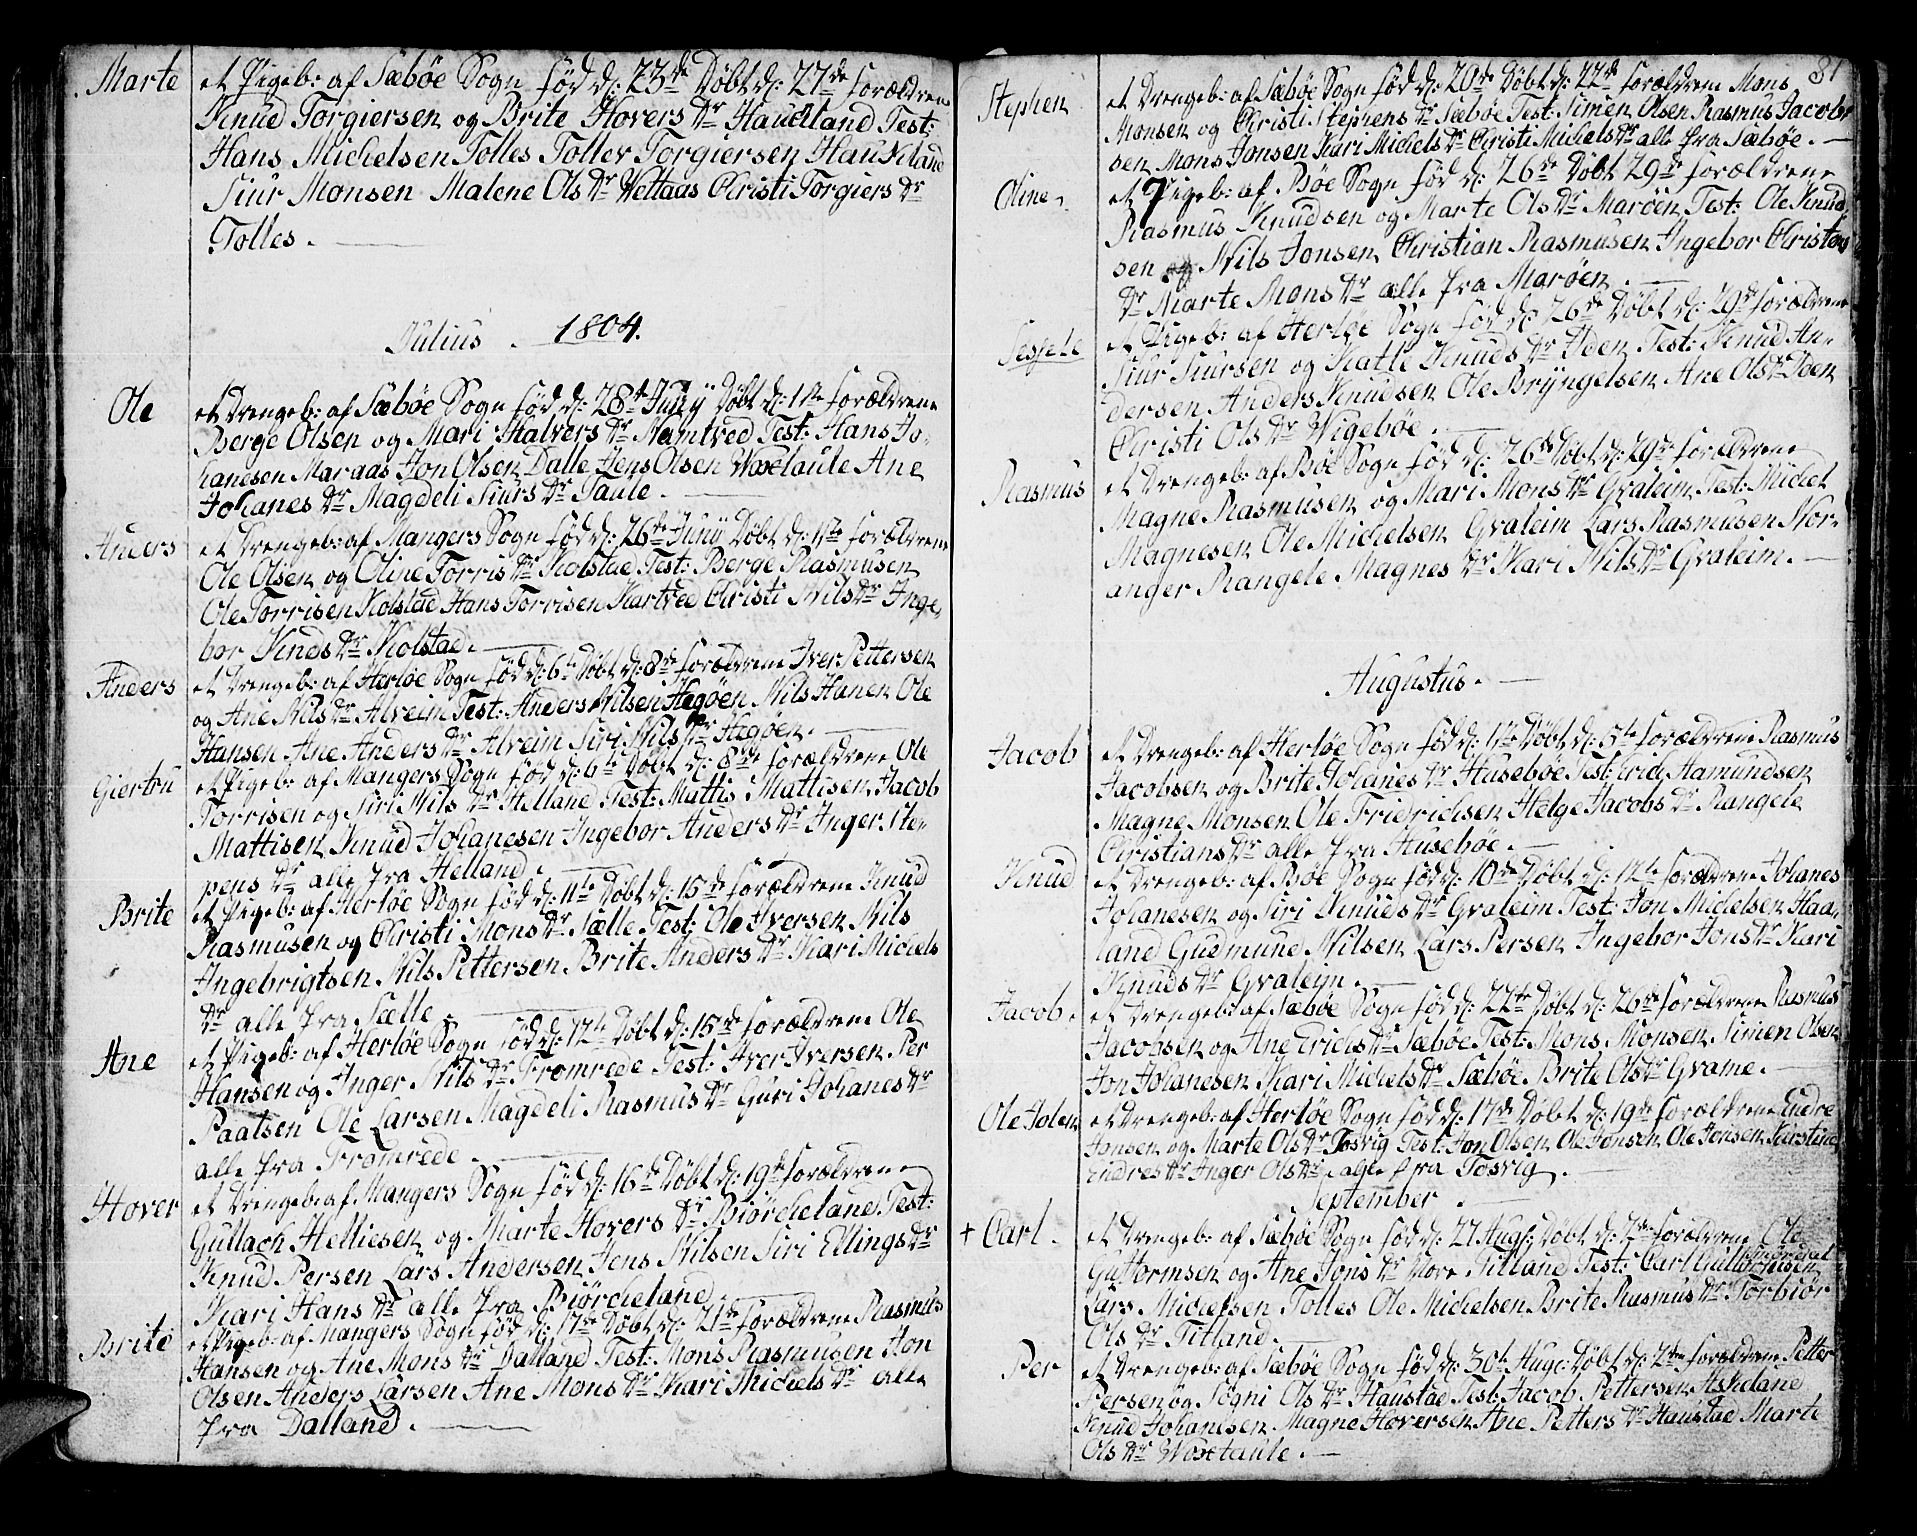 Marte et Pigeb: af Sæbøe Sogn fød d: 23de Døbt d: 27de forældrene
Knud Torgiersen og Brite Hovers Dr Haucland Test:
Hans Michelsen Tolles Toller Torgiersen Haukland
Siur Monsen Malene Ols Dr Wettaas Christi Torgiers Dr
Tolles.
Julius 1804.
Ole et Drengeb: af Sæbøe Sogn fød d: 28de Juny Døbt d: 1te forældrene
Berge Olsen og Mari Halvers Dr Namtved Test: Hans Jo-
hanesen Maraas Jon Olsen Dalle Jens Olsen Woxetaule Ane
Johanes Dr Magdeli Siurs Dr Taule.
Anders et Drengeb: af Mangers Sogn fød d: 26te Juny Døbt d: 1te forældrene
Ole Olsen og Oline Torris Dr Kolstad Test: Berge Rasmusen
Ole Torrisen Kolstad Hans Torrisen Kartved Christi Nils Dr Inge-
bor Knuds Dr Kolstad.
Anders et Drengeb: af Herløe Sogn fød d: 6te Døbt d: 8de forældrene Iver Pettersen
og Ane Nils Dr Alveim Test: Anders Nilsen Hegøen Nils Hanen Ole
Hansen Ane Anders Dr Alveim Siri Nils Dr Hegøen.
Giertru et Pigeb: af Mangers Sogn fød d: 6te Døbt d: 8de forældrene Ole
Torrisen og Siri Nils Dr Helland Test: Mattis Mattisen Jacob
Mattisen Knud Johanesen Ingebor Anders Dr Inger Ste-
pens Dr alle fra Helland.
Brite et Pigeb: af Herløe Sogn fød d: 11te Døbt d: 15de forældrene Knud
Rasmusen og Christi Mons Dr Sælle Test: Ole Iversen Nils
Ingebrigtsen Nils Pettersen Brite Anders Dr Kari Michels
Dr alle fra Sælle.
Ane et Pigeb: af Herløe Sogn fød d: 12te Døbt d: 15de forældrene Ole
Hansen og Inger Nils Dr Fromrede Test: Iver Iversen Per
Paalsen Ole Larsen Magdeli Rasmus Dr Guri Johanes Dr
alle fra Fromrede.
Hover et Drengeb: af Mangers Sogn fød d: 16de Døbt d: 19de forældrene
Gullach Helliesen og Marte Hovers Dr Biørcheland Test:
Knud Persen Lars Andersen Jens Nilsen Siri Ellings Dr
Kari Hans Dr alle fra Biørcheland.
Brite et Pigeb: af Mangers Sogn fød d: 17de Døbt d: 21de forældrene Rasmus
Hansen og Ane Mons Dr Dalland Test: Mons Rasmusen Jon
Olsen Anders Larsen Ane Mons Dr Kari Michels Dr alle
fra Dalland.
81
Stephen et Drengeb: af Sæbøe Sogn fød d: 20de Døbt d: 22de forældrene Mons
Monsen og Christi Stephens Dr Sæbøe Test: Simen Olsen Rasmus Jacob-
sen Mons Jonsen Kari Michels Dr Christi Michels Dr alle fra Sæbøe.
Oline et Pigeb: af Bøe Sogn fød d: 26de Døbt 29de forældrene
Rasmus Knudsen og Marte Ols Dr Marøen Test: Ole Knud-
sen og Nils Jonsen Christian Rasmusen Ingebor Christens
Dr Marte Mons Dr alle fra Marøen.
Sessele et Pigeb: af Herløe Sogn fød d: 26de Døbt d: 29de forældrene
Siur Siursen og Katle Knuds Dr Øden Test: Knud An-
dersen Anders Knudsen Ole Bryngelsen Ane Ols Dr Øden
Christi Ols Dr Wigebøe.
Rasmus et Drengeb: af Bøe Sogn fød d: 26de Døbt d: 29de forældrene
Magne Rasmusen og Mari Mons Dr Gvaleim Test: Michel
Magnesen Ole Michelsen Gvaleim Lars Rasmusen Nor-
anger Rangele Magnes Dr Kari Nils Dr Gvaleim.
Augustus.
Jacob et Drengeb: af Herløe Sogn fød d: 1te Døbt d: 5te forældrene Rasmus
Jacobsen og Brite Johanes Dr Husebøe Test: Erich Aamundsen
Magne Monsen Ole Friedrichsen Helge Jacobs Dr Rangele
Christians Dr alle fra Husebøe.
Knud et Drengeb: af Bøe Sogn fød d: 10de Døbt d: 12te forældrene Johanes
Johanesen og Siri Knuds Dr Gvaleim Test: Jon Michelsen Haa-
land Gudmund Nilsen Lars Persen Ingebor Jons Dr Kari
Knuds Dr Gvaleim.
Jacob. et Drengeb: af Sæbøe Sogn fød d: 22de Døbt d: 26de forældrene Rasmus
Jacobsen og Ane Erichs Dr Sæbøe Test: Mons Monsen Simen Olsen
Jon Johanesen Kari Michels Dr Sæbøe Brite Ols Dr Gvame.
Ole Johan et Drengeb: af Herløe Sogn fød d: 17de Døbt d: 19de forældrene Endre
Jonsen og Marte Ols Dr Tosvig Test: Jon Olsen Ole Jonsen Ole Jensen Kirstine
Endres Dr Inger Ols Dr alle fra Tosvig.
September.
+ Carl. et Drengeb: af Sæbøe Sogn fød d: 27 Aug: Døbt d: 2den forældrene Ole
Guttormsen og Ane Jons Dr More Titland Test: Carl Guttormsen
Lars Michelsen Tolles Ole Michelsen Brite Rasmus Dr Torbiør
Ols Dr Titland.
Per et Drengeb: af Sæbøe Sogn fød d: 30te Aug: Døbt d: 2den forældrene Petter
Persen og Søgni Ols Dr Haustad Test: Jacob Pettersen Askeland
Knud Johanesen Magne Hoversen Ane Petters Dr Haustad Marte
Ols Dr Woxetaule.